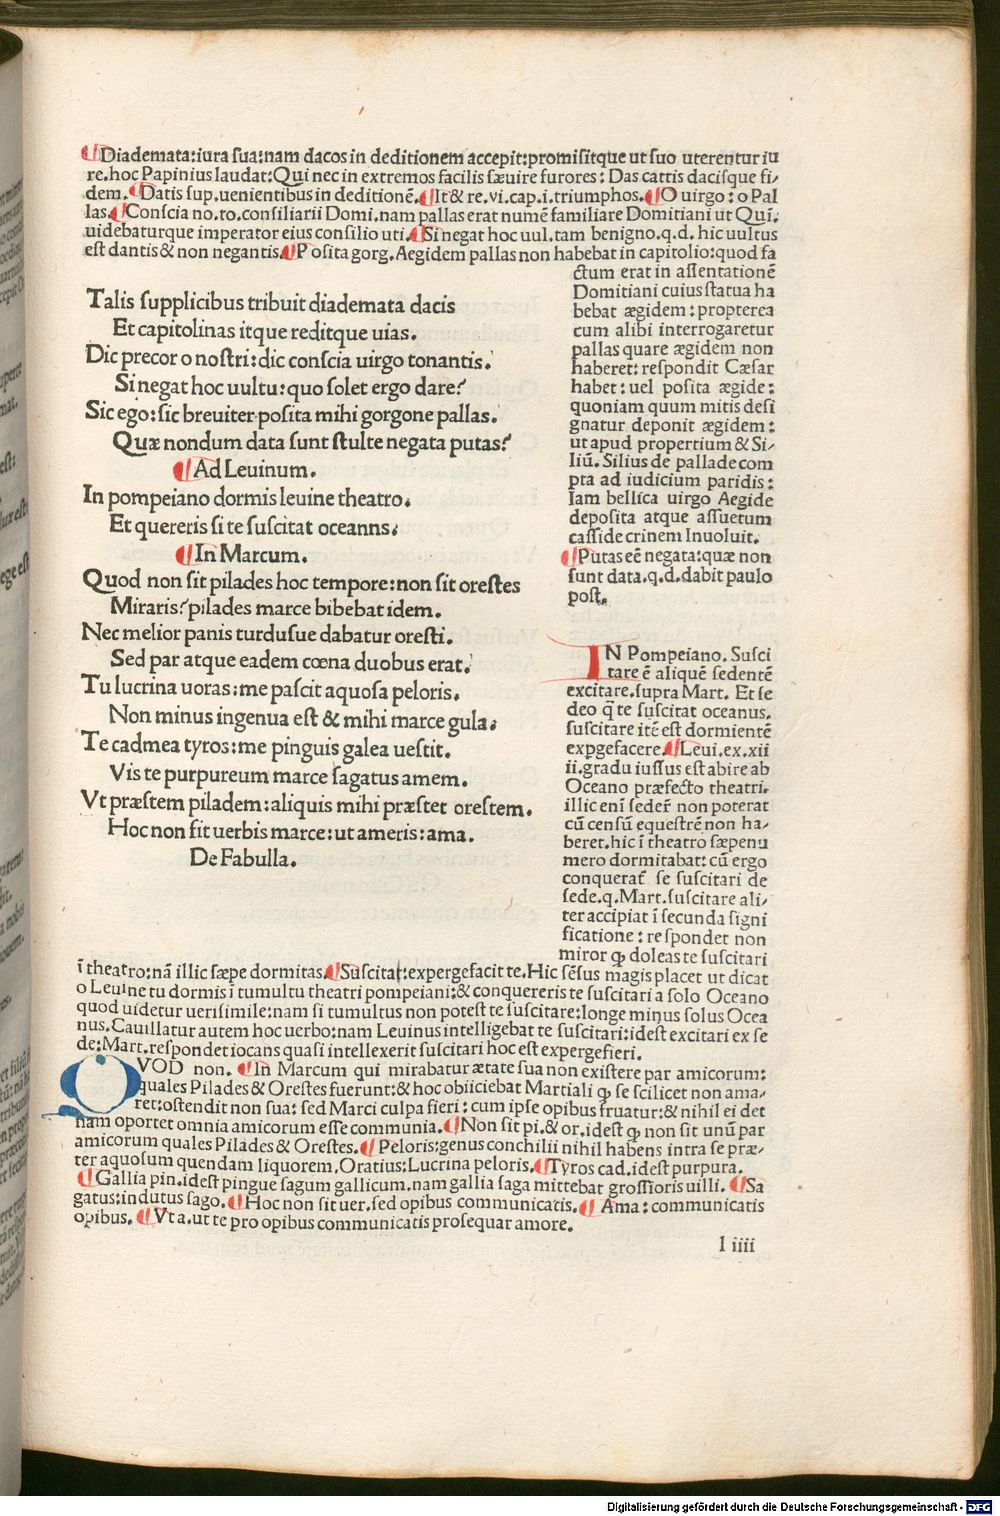 ¶Diademata:iura sua:nam dacos in deditionem accepit:promisitque ut suo uterentur iu
re.hoc Papinius laudat: Qui nec in extremos facilis sæuire furores: Das cattis dacisque fi⸗
dem.¶Datis sup.uenientibus in deditionē.¶It & re.vi.cap.i.triumphos.¶O uirgo:o Pal
las.¶Conscia no.to.consiliarii Domi.nam pallas erat numē familiare Domitiani ut Qui.
uidebaturque imperator eius consilio uti.¶Si negat hoc uul.tam benigno.q.d. hic uultus
est dantis & non negantis.¶Posita gorg.Aegidem pallas non habebat in capitolio:quod fa
ctum erat in assentationē
Domitiani cuius statua ha
bebat ægidem:propterea
cum alibi interrogaretur
pallas quare ægidem non
haberet:respondit Cæsar
habet:uel posita ægide:
quoniam quum mitis desi
gnatur deponit ægidem:
ut apud propertium & Si⸗
liū. Silius de pallade com
pta ad iudicium paridis:
Iam bellica uirgo Aegide
deposita atque assuetum
casside crinem Inuoluit.
¶Putas eē negata:quæ non
sunt data.q.d.dabit paulo
post.
Talis supplicibus tribuit diademata dacis
Et capitolinas itque reditque uias.
Dic precor o nostri:dic conscia uirgo tonantis.
Si negat hoc uultu:quo solet ergo dare?
Sic ego:sic breuiter posita mihi gorgone pallas.
Quæ nondum data sunt stulte negata putas?
¶Ad Leuinum.
In pompeiano dormis leuine theatro.
Et quereris si te suscitat oceanns.
¶In Marcum.
Quod non sit pilades hoc tempore:non sit orestes
Miraris? pilades marce bibebat idem.
Nec melior panis turdusue dabatur oresti.
Sed par atque eadem cœna duobus erat.
Tu lucrina uoras:me pascit aquosa peloris.
Non minus ingenua est & mihi marce gula.
Te cadmea tyros:me pinguis galea uestit.
Vis te purpureum marce sagatus amem.
Vt præstem piladem:aliquis mihi præstet orestem.
Hoc non fit uerbis marce:ut ameris:ama.
De Fabulla.
IN Pompeiano. Susci
tare ē aliquē sedentē
excitare.supra Mart. Et se
deo q̄ te suscitat oceanus.
suscitare itē est dormientē
expgefacere.¶Leui.ex.xii
ii.gradu iussus est abire ab
Oceano præfecto theatri.
illic enī sedeř non poterat
cū censū equestrē non ha⸗
beret.hic ī theatro sæpenu
mero dormitabat:cū ergo
conqueraŧ se suscitari de
sede.q.Mart.suscitare ali⸗
ter accipiat ī secunda signi
ficatione:respondet non
miror ꝙ doleas te suscitari
ī theatro:nā illic sæpe dormitas.¶Suscitat:expergefacit te.Hic sēsus magis placet ut dicat
o Leuine tu dormis ī tumultu theatri pompeiani:& conquereris te suscitari a solo Oceano
quod uidetur uerisimile:nam si tumultus non potest te suscitare:longe minus solus Ocea
nus.Cauillatur autem hoc uerbo:nam Leuinus intelligebat te suscitari:idest excitari ex se
de:Mart.respondet iocans quasi intellexerit suscitari hoc est expergefieri.
QVOD non.¶In Marcum qui mirabatur ætate sua non existere par amicorum:
quales Pilades & Orestes fuerunt:& hoc obiiciebat Martiali ꝙ se scilicet non ama⸗
ret:ostendit non sua: sed Marci culpa fieri:cum ipse opibus fruatur:& nihil ei det
nam oportet omnia amicorum esse communia.¶Non sit pi.& or.idest ꝙ non sit unū par
amicorum quales Pilades & Orestes.¶Peloris:genus conchilii nihil habens intra se præ⸗
ter aquosum quendam liquorem.Oratius:Lucrina peloris.¶Tyros cad.idest purpura.
¶Gallia pin.idest pingue sagum gallicum.nam gallia saga mittebat grossioris uilli.¶Sa
gatus:indutus sago.¶Hoc non sit uer.sed opibus communicatis.¶Ama:communicatis
opibus.¶Vt a.ut te pro opibus communicatis prosequar amore.
I iiii
Digitalisierung gefördert durch die Deutsche Forschungsgemeinschaft - DFG